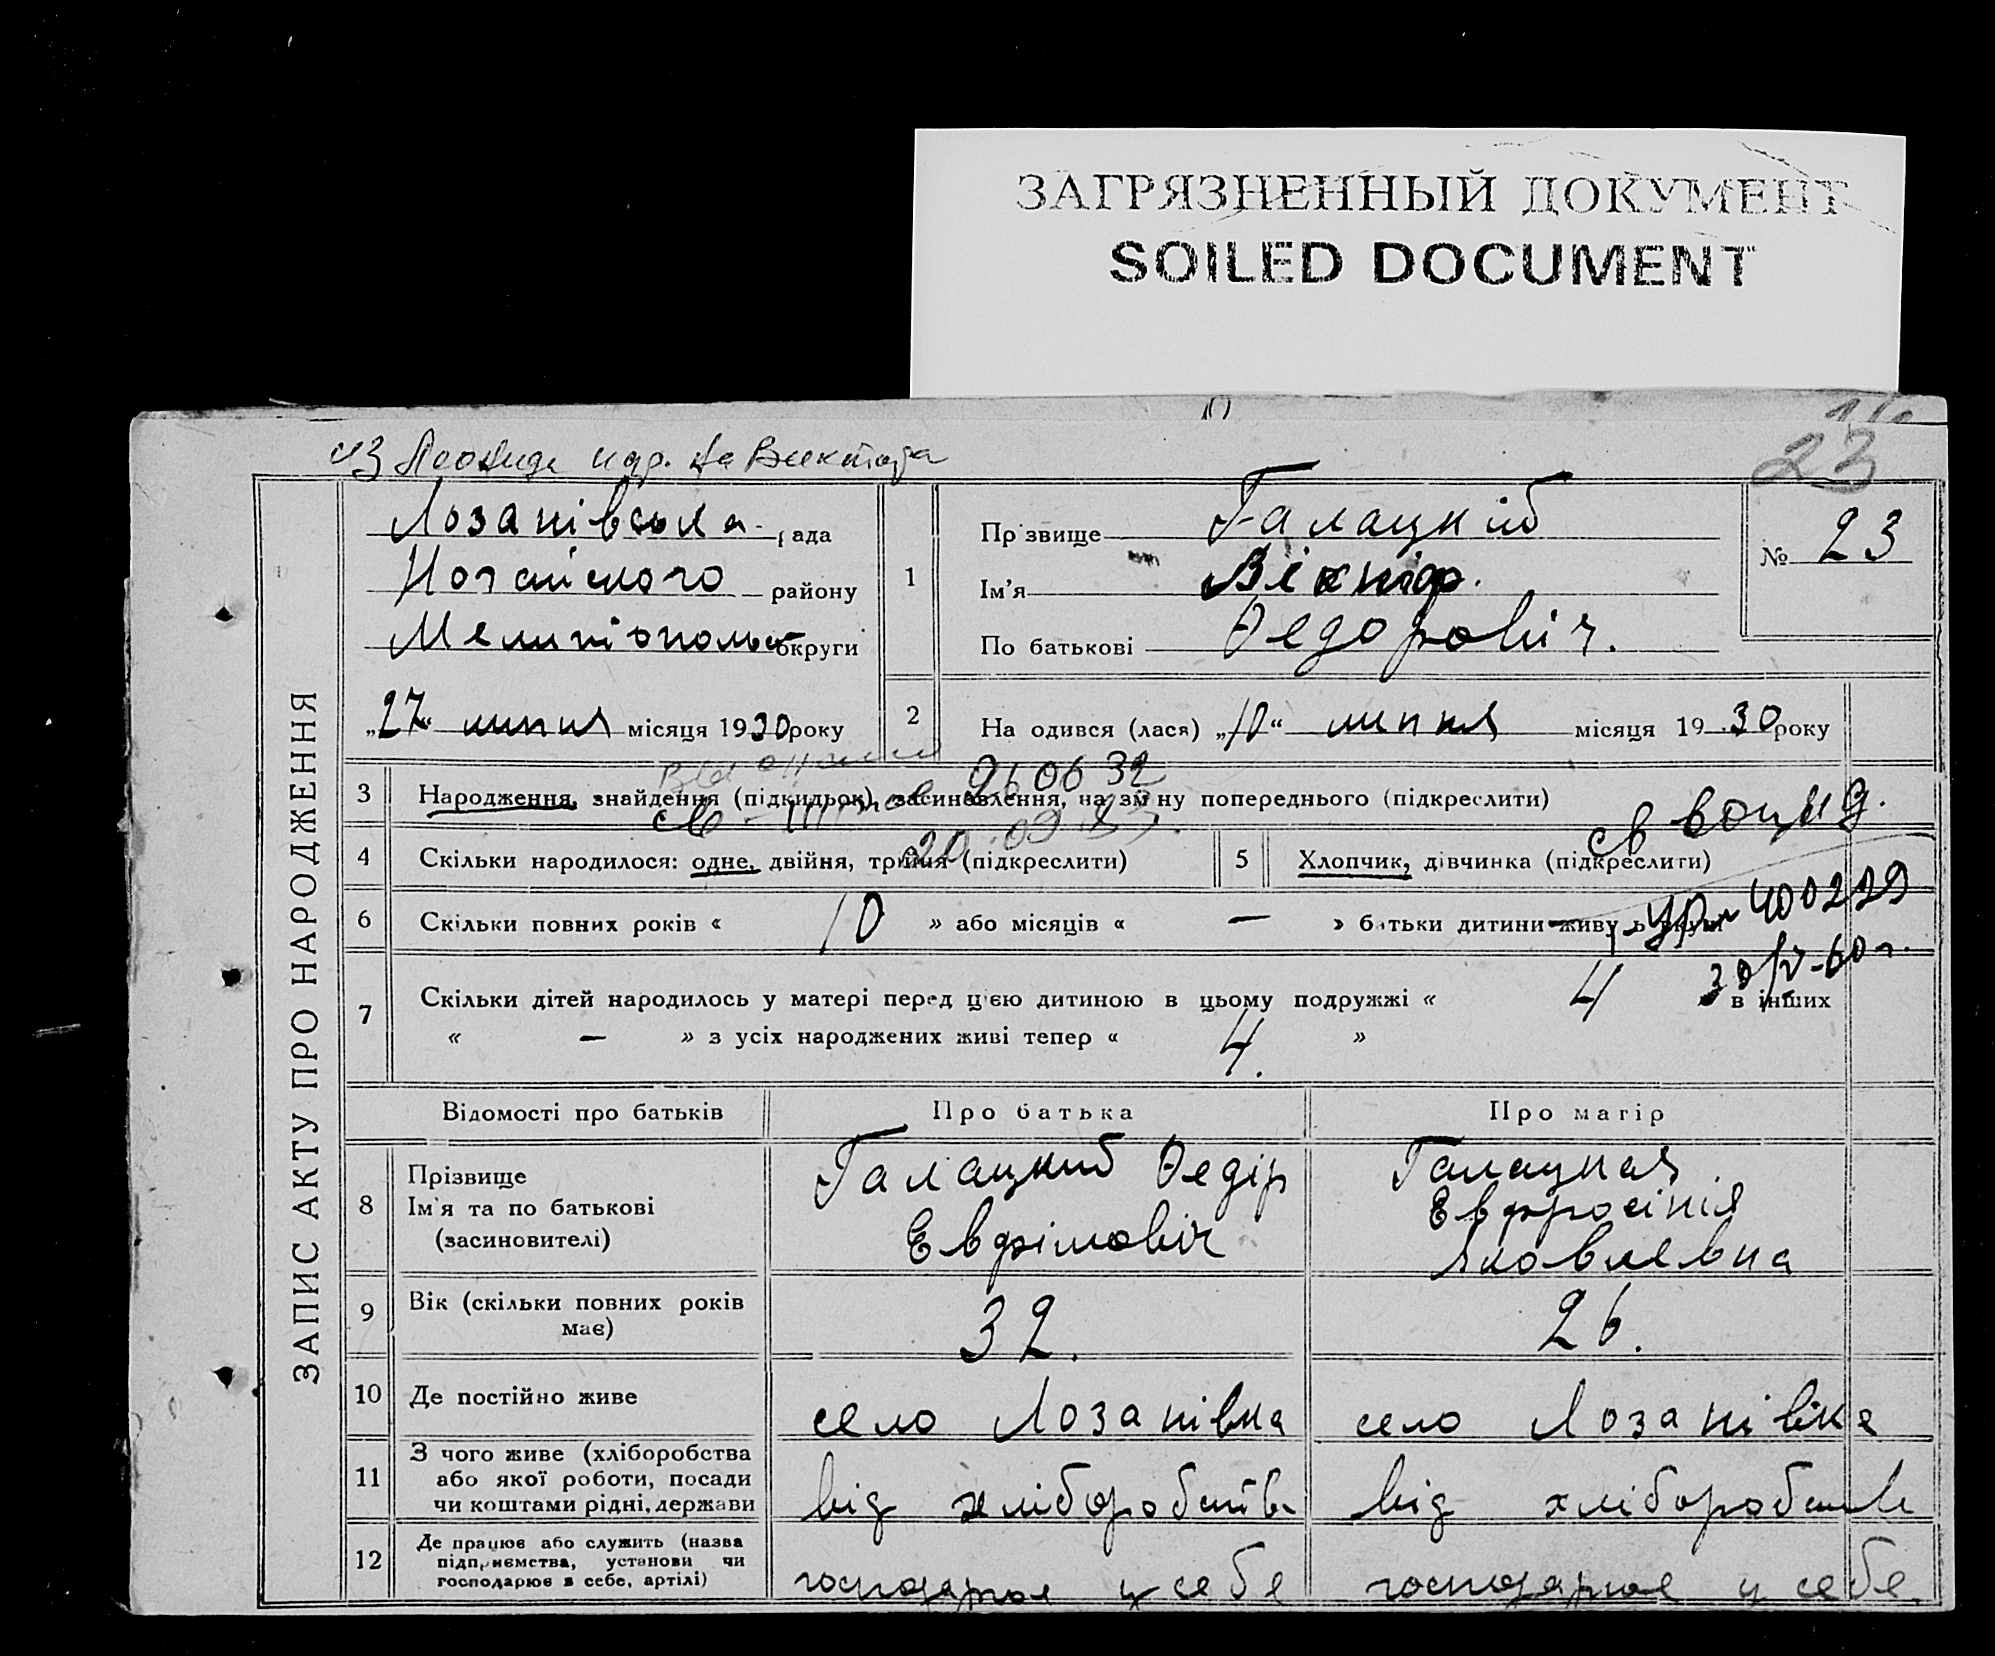 ЗАГРЯЗНЕННЫЙ ДОКУМЕНТ
SOILED DOCUMENT
23
из Леонида на Виктора
ЗАПИС АКТУ ПРО НАРОДЖЕННЯ
Лозанівська рада
Ногайського району
Мелитопольс округи
„27“ липня місяця 1930 року
1
Прізвище Галацкій
Ім'я Віктор.
По батькові Федоровіч.
№ 23
2 На одився (лася) „10“ липня місяця 19 30 року
260632
3 Народження, знайдення (підкидьок), засиновлення, на зміну попереднього (підкреслити)
20.09.83
4 Скільки народилося: одне, двійня, трійня (підкреслити)
5 Хлопчик, дівчинка (підкреслити)
6 Скільки повних років « 10 » або місяців « — » батьки дитини живуть вкупі
400229
30/V-60 г.
7 Скільки дітей народилось у матері перед цією дитиною в цьому подружжі « 4 » в інших
« — » з усіх народжених живі тепер « 4. »
Відомості про батьків Про батька Про матір
8 Прізвище Ім'я та по батькові (засиновителі)
Галацкий Федір Евфімовіч
Галацкая Евфросінія Яковлевна
9 Вік (скільки повних років має) 32. 26.
10 Де постійно живе село Лозанівка село Лозанівка
11 З чого живе (хліборобства або якої роботи, посади чи коштами рідні, держави
від хліборобства від хліборобства
12 Де працює або служить (назва підприємства, установи чи господарює в себе, артілі)
господарює у себе господарює у себе.